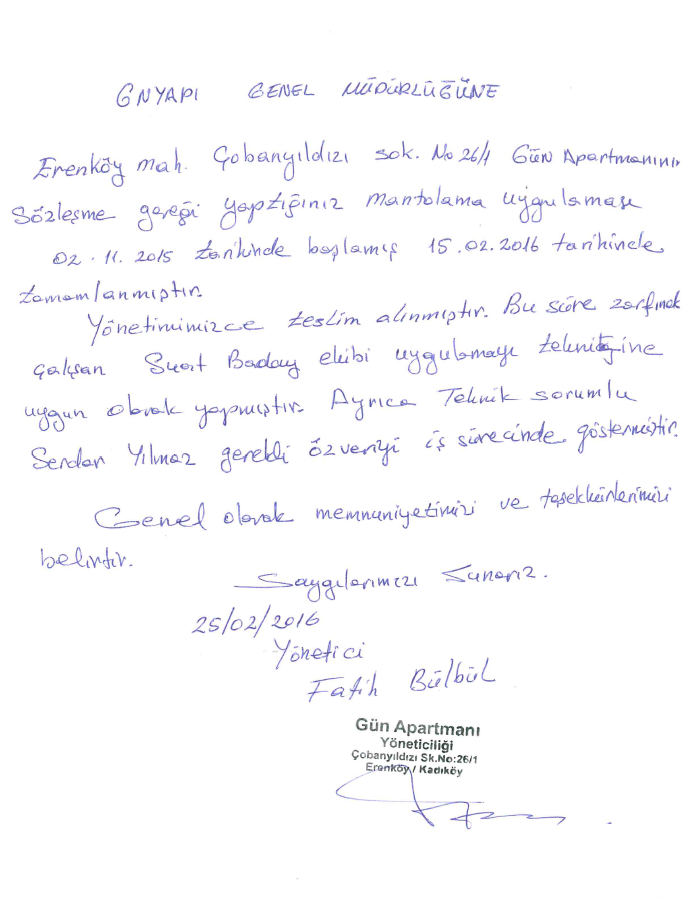 GNYAPI GENEL MÜDÜRLÜĞÜNE
Erenköy mah. Çobanyıldızı sok. No 26/1 Gün Apartmanının
Sözleşme gereği yaptığınız mantolama uygulaması
02.11.2015 tarihinde başlamış 15.02.2016 tarihinde
tamamlanmıştır.
Yönetimimizce teslim alınmıştır. Bu süre zarfında
çalışan Suat Baday ekibi uygulamayı tekniğine
uygun olarak yapmıştır. Ayrıca Teknik sorumlu
Serdar Yılmaz gerekli özveriyi iş sürecinde göstermiştir.
Genel olarak memnuniyetimizi ve teşekkürlerimizi
belirtir.
Saygılarımızı Sunarız.
25/02/2016
Yönetici
Fatih Bülbül
Gün Apartmanı
Yöneticiliği
Çobanyıldızı Sk.No:26/1
Erenköy / Kadıköy